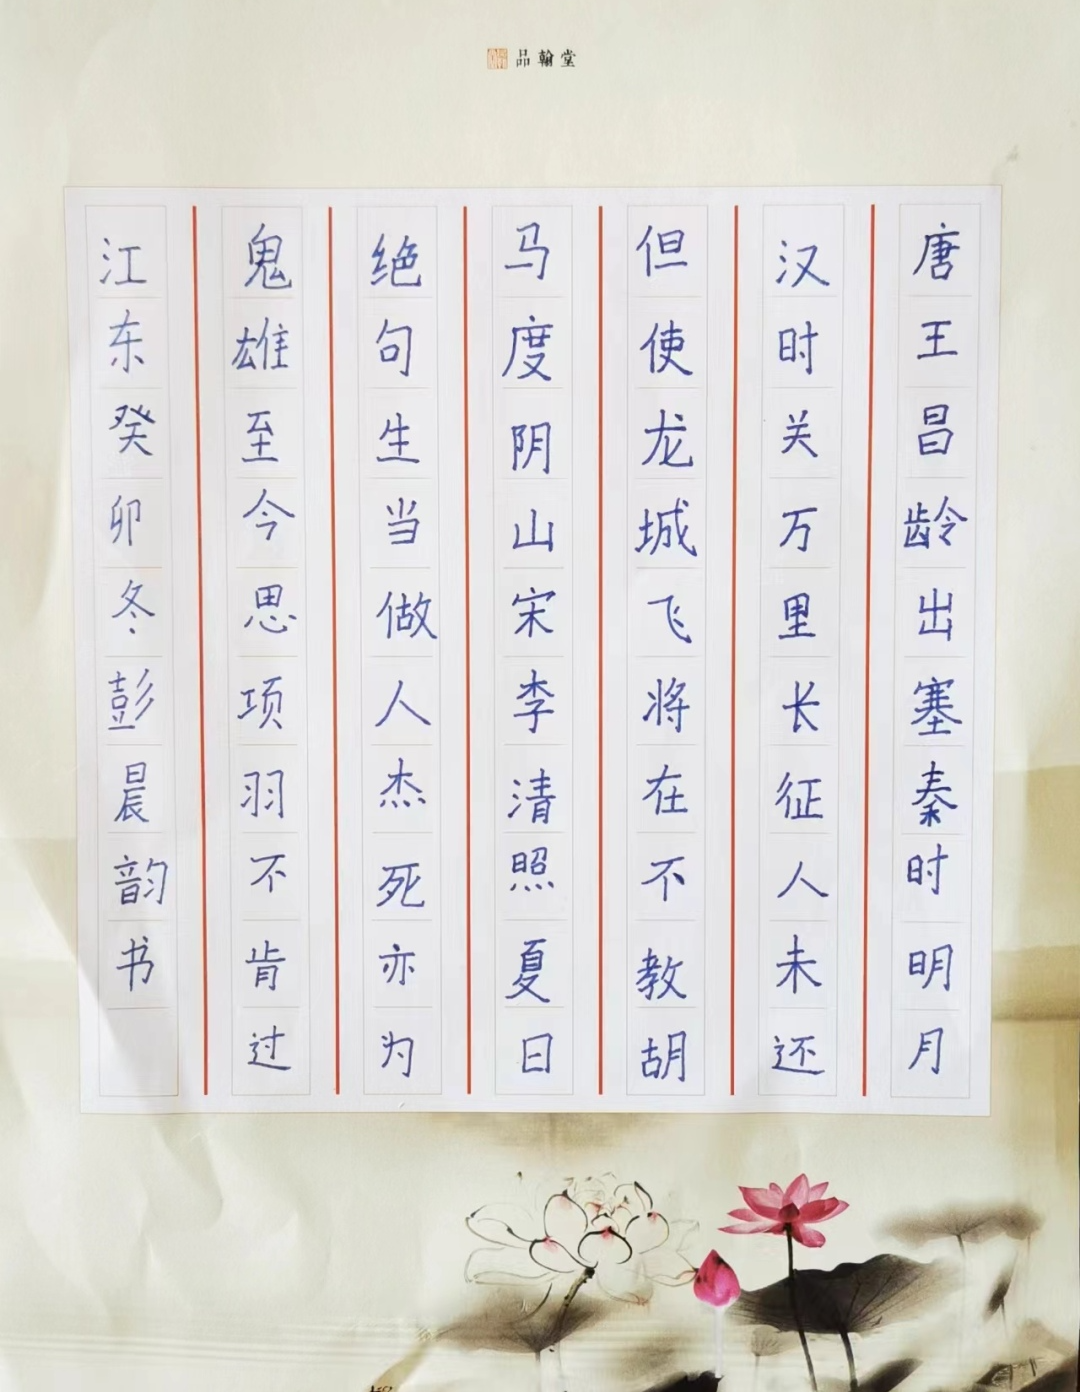 品翰堂
唐王昌龄出塞秦时明月
汉时关万里长征人未还
但使龙城飞将在不教胡
马度阴山宋李清照夏日
绝句生当做人杰死亦为
鬼雄至今思项羽不肯过
江东癸卯冬彭晨韵书